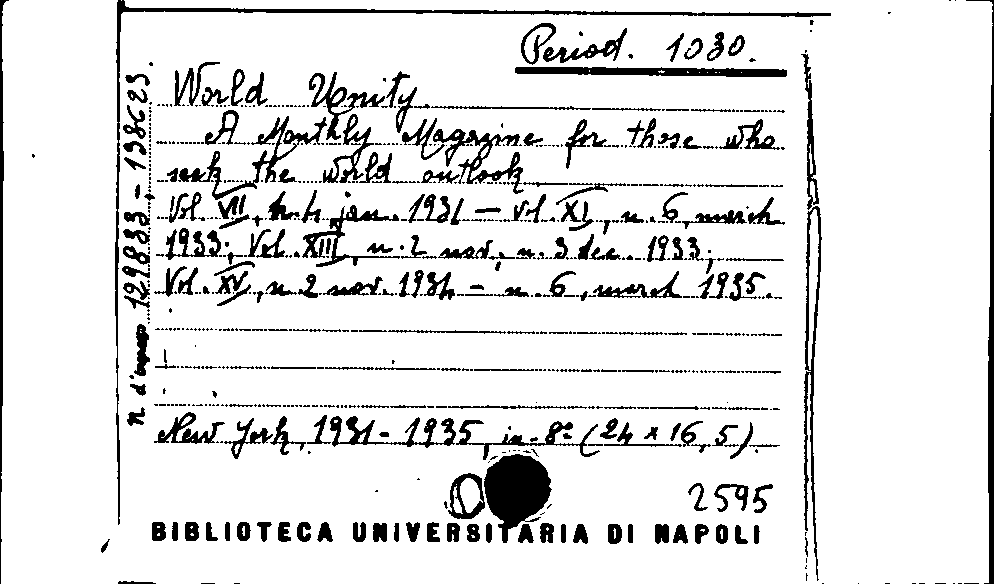 Period. 1030.
World Unity.
A Monthly Magazine for those who
seek the world outlook.
Vol. VII, n. 4, jan. 1931 – Vol. XI, n. 6, march
1933; Vol. XIII, n. 2 nov., n. 3 dec. 1933;
Vol. XV, n. 2 nov. 1934 – n. 6, march 1935.
New York, 1931 - 1935, in-8º (24 x 16,5).
2595
BIBLIOTECA UNIVERSITARIA DI NAPOLI
n. d'ingresso 129833 – 138623.